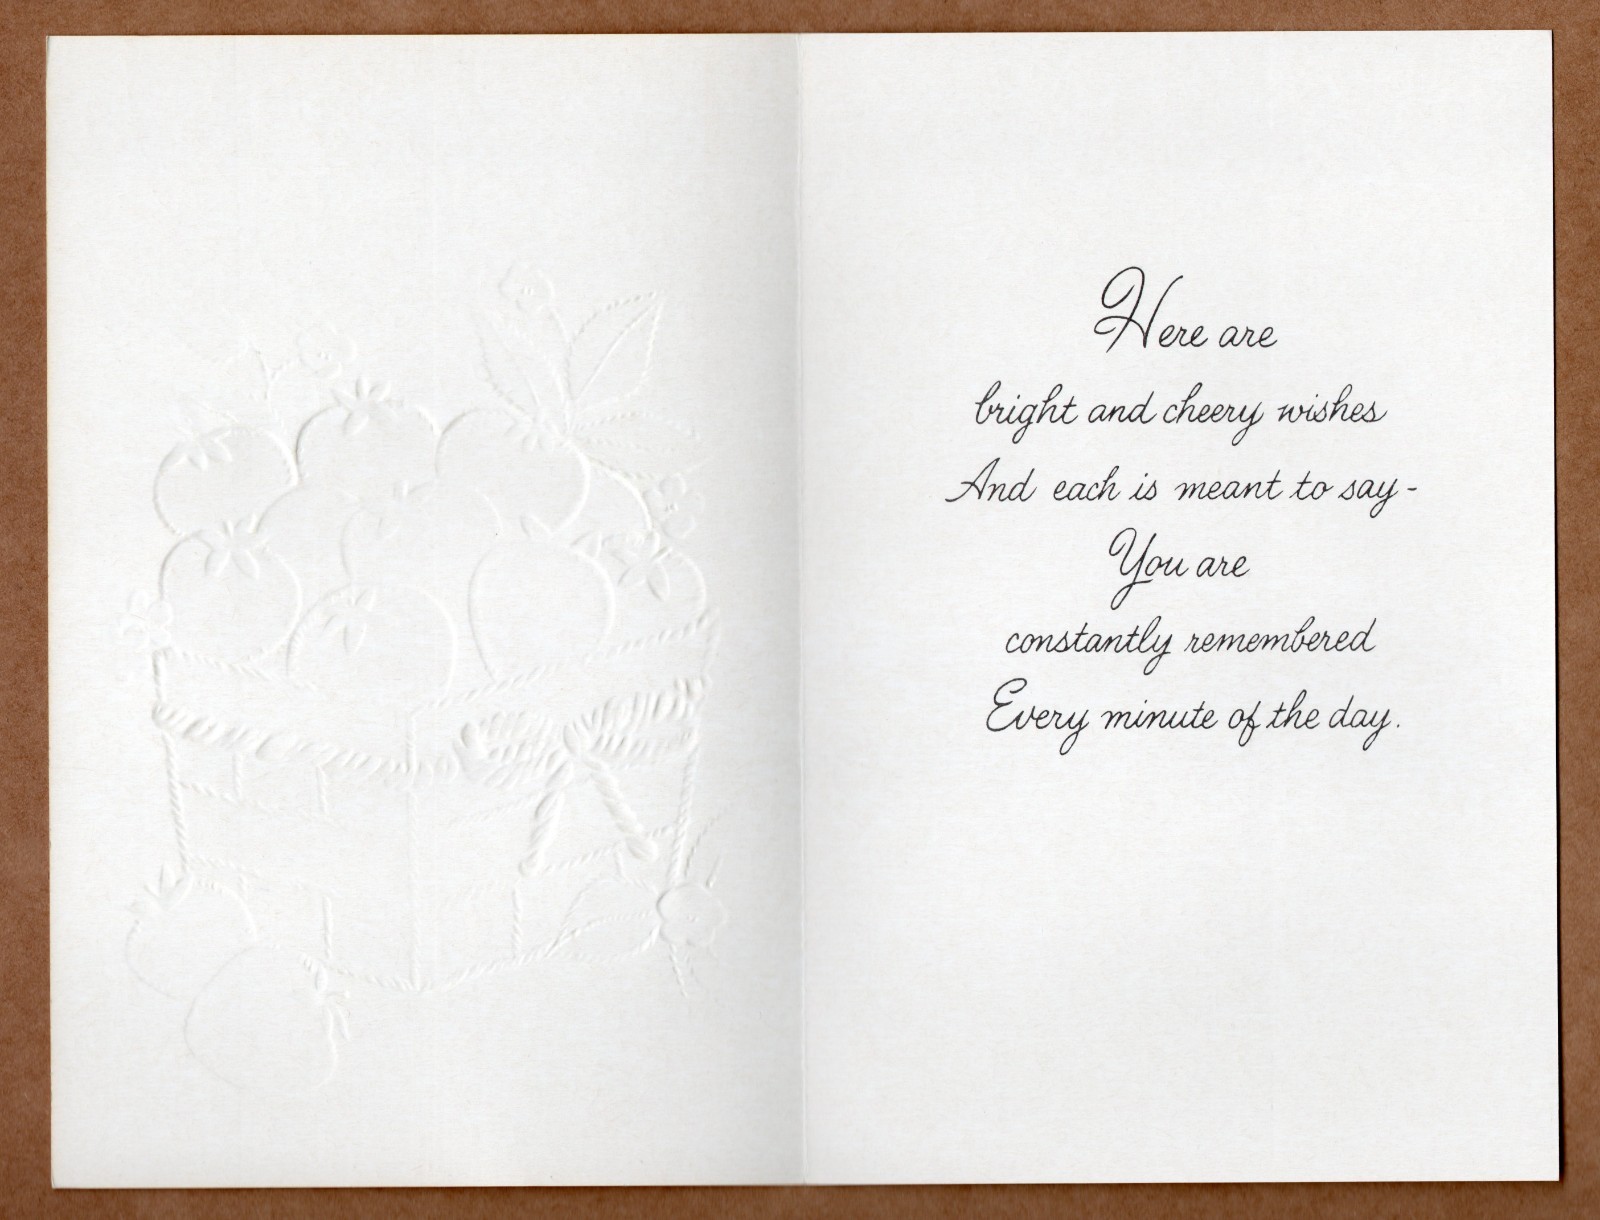 Here are
bright and cheery wishes
And each is meant to say-
You are
constantly remembered
Every minute of the day.